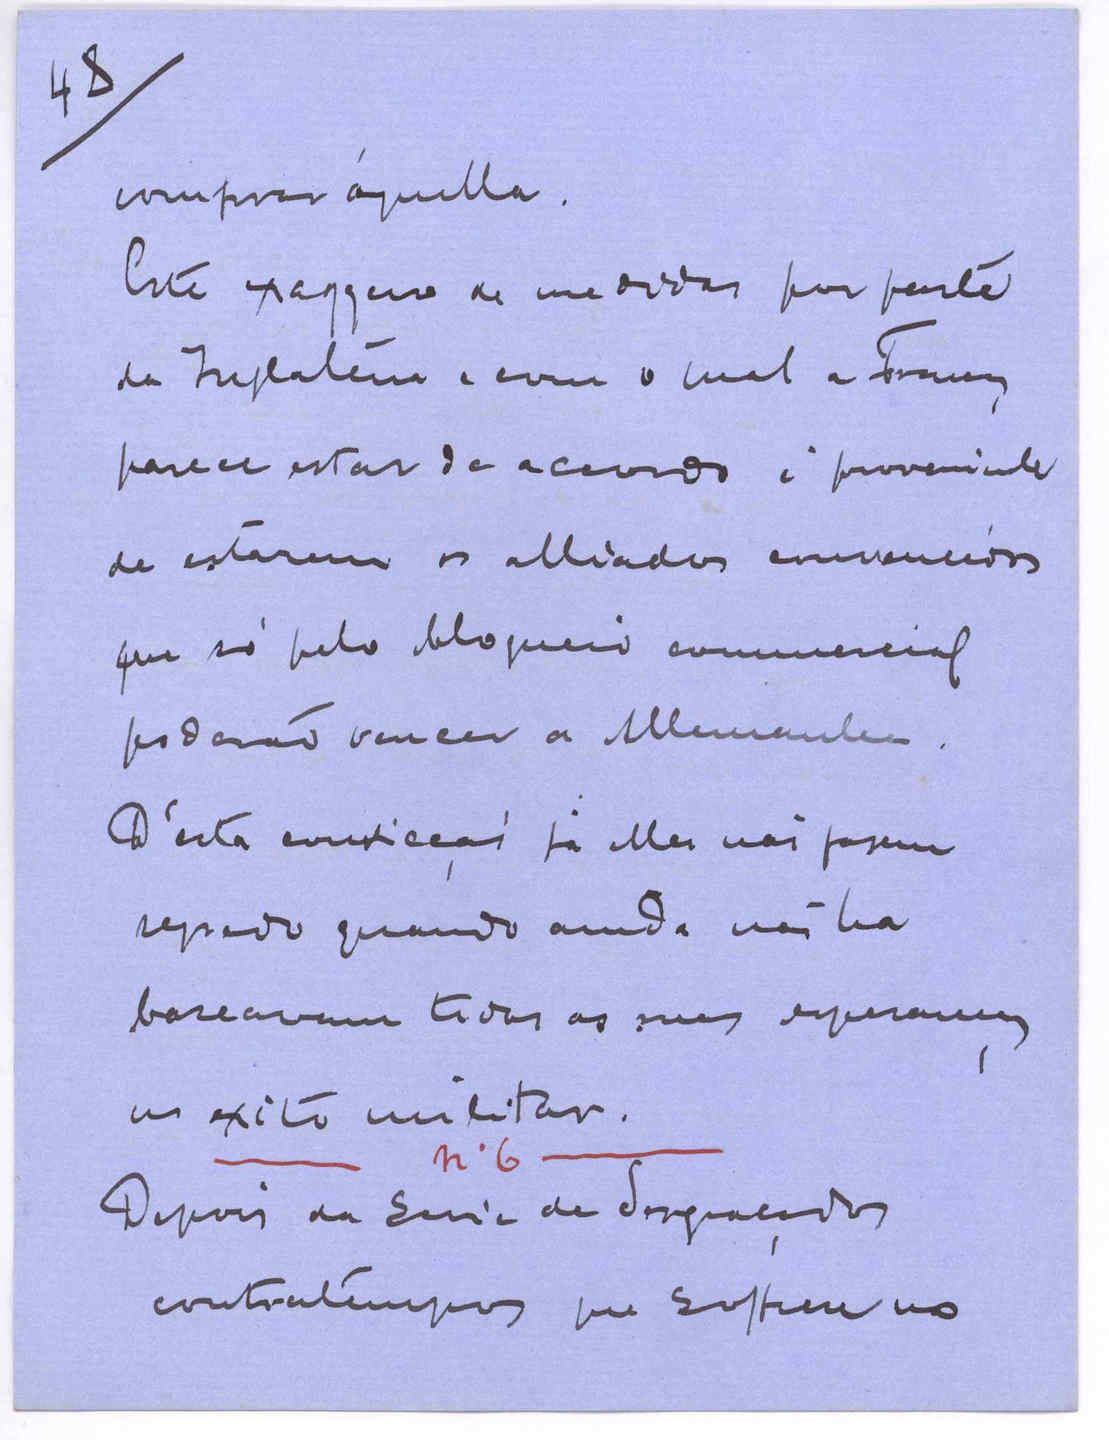 48/
comprar áquella.
Este exaggero de medidas por parte
da Inglaterra e com o qual a França
parece estar de accordo é proveniente
de estarem os alliados convencidos
que só pelo bloqueio commercial
poderão vencer a Allemanha.
D'esta convicção já elles não fazem
segredo quando ainda não ha
baseavam todas as suas esperanças
no exito militar.
nº 6
Depois da serie de desgraçados
contratempos que soffreu no